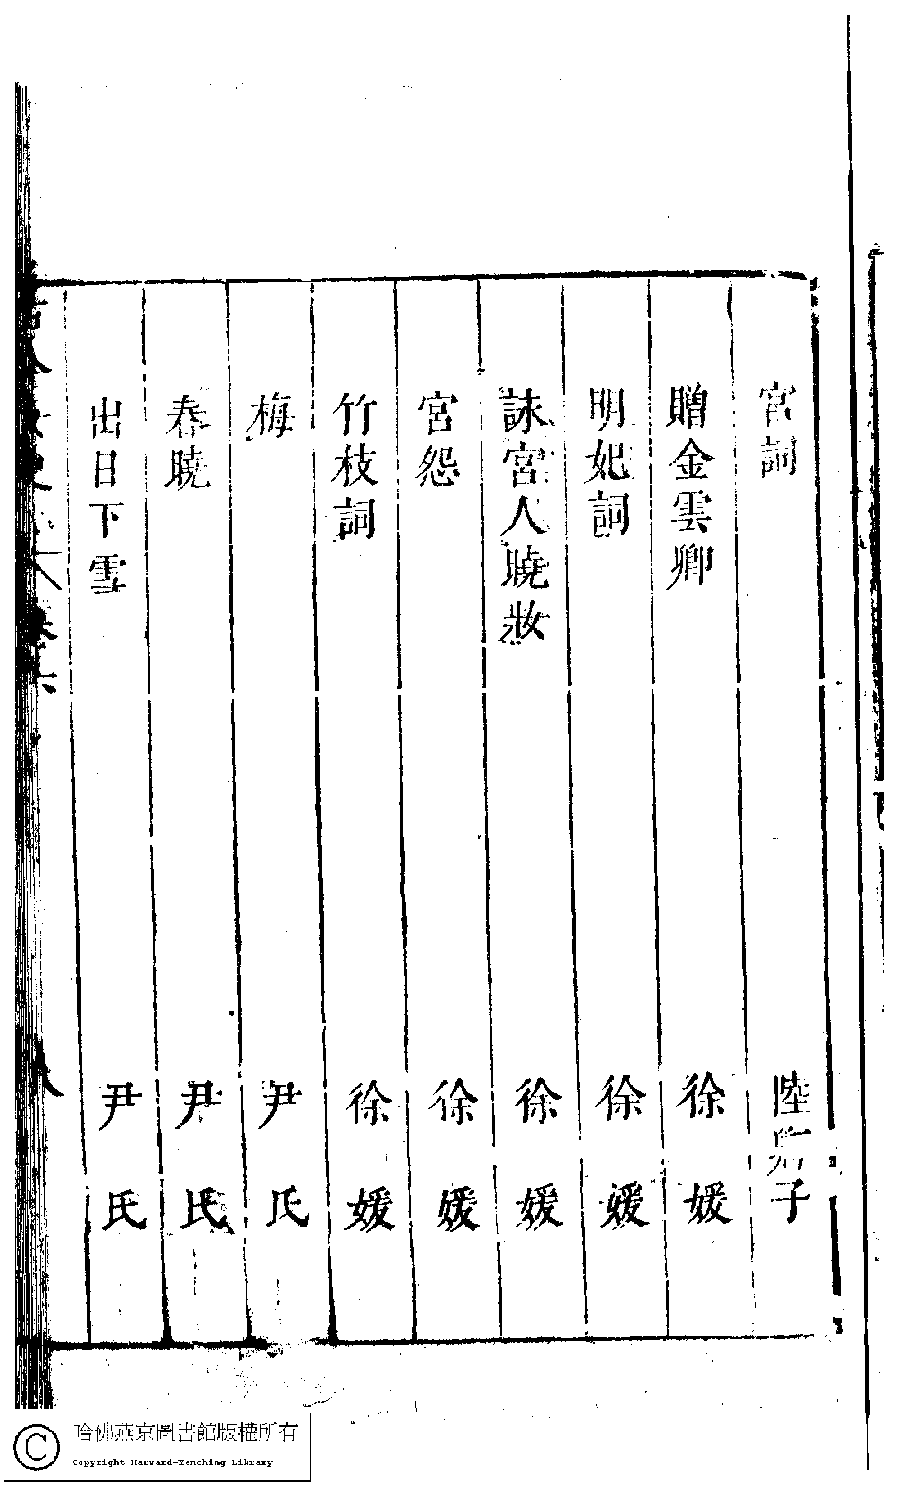 宮詞 陸卿子
贈金雲卿 徐媛
明妃詞 徐媛
詠宮人曉妝 徐媛
宮怨 徐媛
竹枝詞 徐媛
梅 尹氏
春曉 尹氏
出日下雪 尹氏
八
哈佛燕京圖書館版權所有
Copyright Harvard-Yenching Library